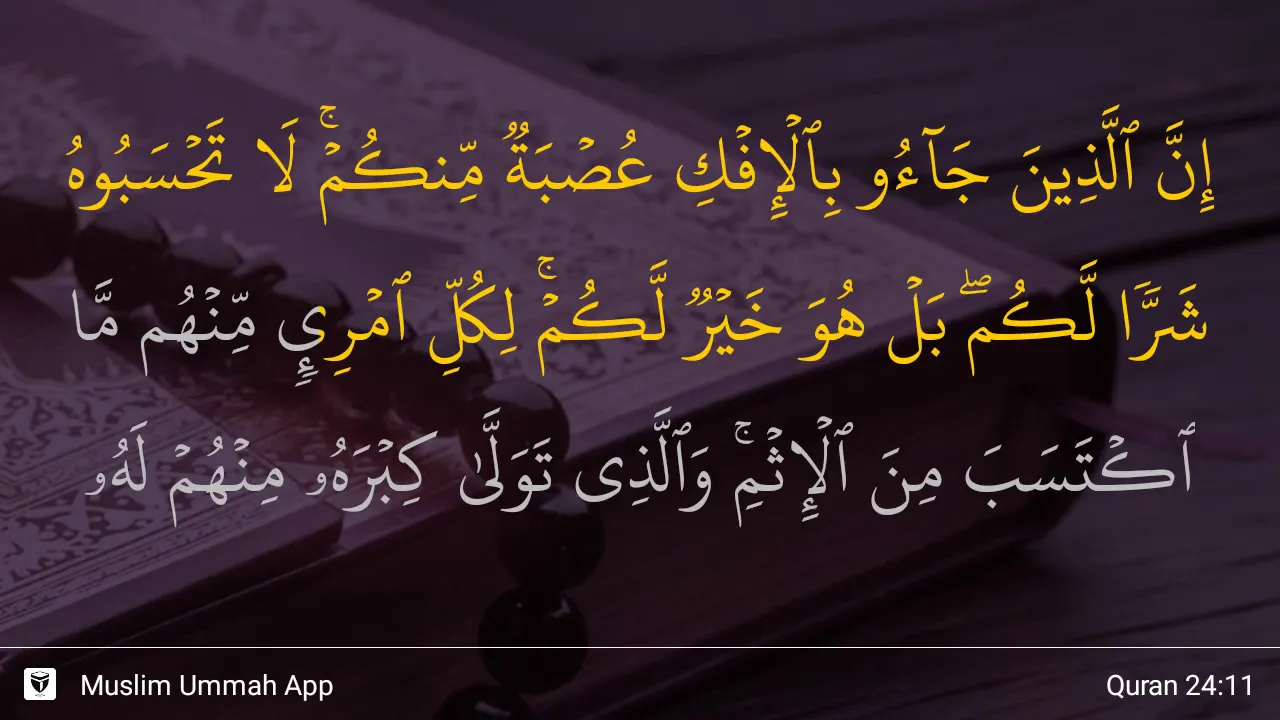 إِنَّ ٱلَّذِينَ جَآءُو بِٱلْإِفْكِ عُصْبَةٌ مِّنكُمْ ۚ لَا تَحْسَبُوهُ
شَرًّا لَّكُم ۖ بَلْ هُوَ خَيْرٌ لَّكُمْ ۚ لِكُلِّ ٱمْرِئٍ مِّنْهُم مَّا
ٱكْتَسَبَ مِنَ ٱلْإِثْمِ ۚ وَٱلَّذِى تَوَلَّىٰ كِبْرَهُۥ مِنْهُمْ لَهُۥ
Muslim Ummah App
Quran 24:11